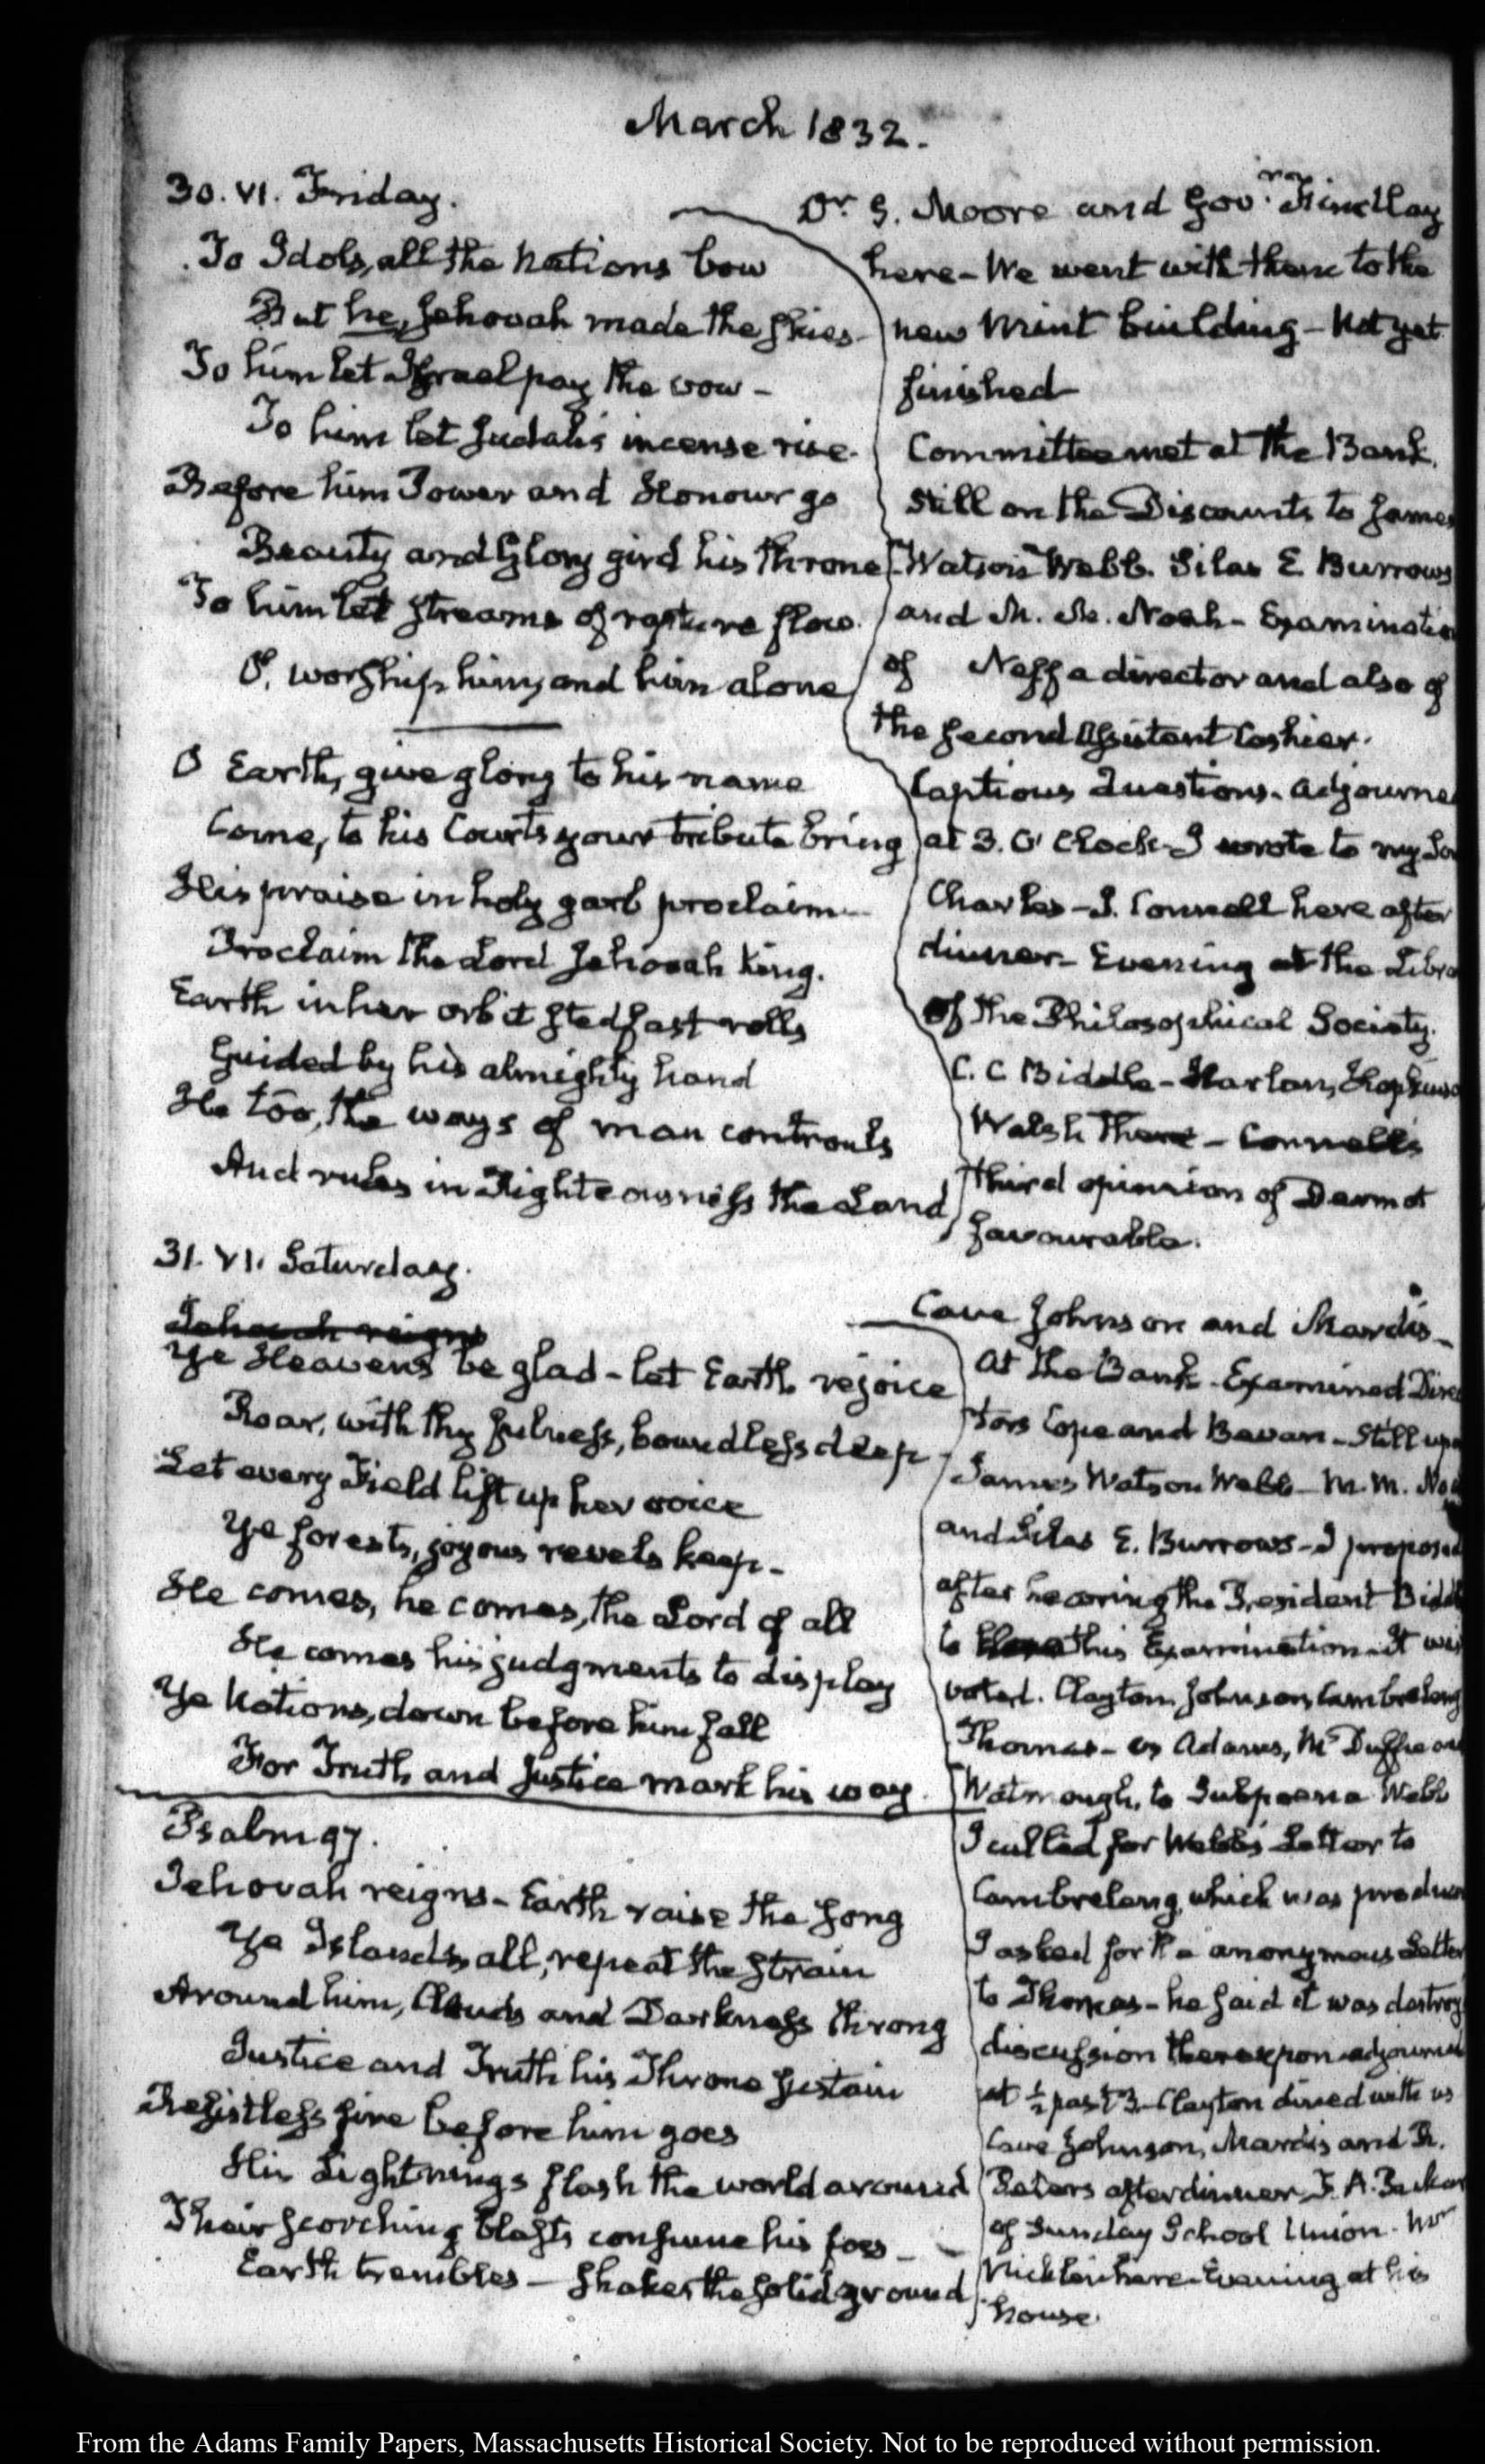 March 1832.
30. VI. Friday.
To Idols, all the Nations bow
But he, Jehovah made the skies
To him let Israel pay the vow -
To him let Judah's incense rise.
Before him Power and Honour go
Beauty and Glory gird his throne
To him let streams of rapture flow.
O, worship him, and him alone
O Earth, give glory to his name
Come, to his Courts your tribute bring
His praise in holy garb proclaim -
Proclaim the Lord Jehovah King.
Earth in her orbit stedfast rolls
Guided by his almighty hand
He too, the ways of man controuls
And rules in Righteousness the Land
Dr. S. Moore and Govr. Findlay
here - We went with them to the
new Mint building - Not yet
finished
Committee met at the Bank.
Still on the Discounts to James
Watson Webb. Silas E. Burrows
and M. M. Noah - Examinatio
of Neff a director and also of
the second Assistant Cashier.
Captious Questions. adjourne
at 3. O' Clock - I wrote to my So
Charles - J. Connell here after
dinner - Evening at the Libra
of the Philosophical Society.
C. C Biddle - Harlan, Hopkins
Walsh there - Connell's
third opinion of Dermot
favourable.
31. VI. Saturday.
Jehovah reigns
Ye Heavens be glad - let Earth rejoice
Roar, with thy fulness, boundless deep -
Let every Field lift up her voice
Ye forests, joyous revels keep -
He comes, he comes, the Lord of all
He comes his judgments to display
Ye Nations, down before him fall
For Truth and Justice mark his way.
Psalm 97.
Jehovah reigns - Earth raise the song
Ye Islands, all, repeat the strain
Around him, Clouds and Darkness throng
Justice and Truth his Throne sustain
Resistless fire before him goes
His Lightnings flash the world around
Their scorching blasts consume his foes -
Earth trembles - shakes the solid ground.
Cave Johnson and Mardis -
At the Bank - Examined Direc
tors Cope and Bevan - Still upo
James Watson Webb - M. M. Noa
and Silas E. Burrows - I proposed
after hearing the President Bidd
to this Examination - It was
voted. Clayton, Johnson, Cambreleng
Thomas - vs Adams, Mc Duffie an
Watmough, to Subpoena Webb
I called for Webb's Letter to
Cambreleng, which was produc
I asked for the anonymous Letter
to Thomas - he said it was destroy
discussion thereupon - adjourned
at ½ past 3 - Clayton dined with us
Cave Johnson, Mardis and R.
Peters after dinner F. A. Packar
of Sunday School Union. Mr
Nicklin here - Evening at his
house.
From the Adams Family Papers, Massachusetts Historical Society. Not to be reproduced without permission.